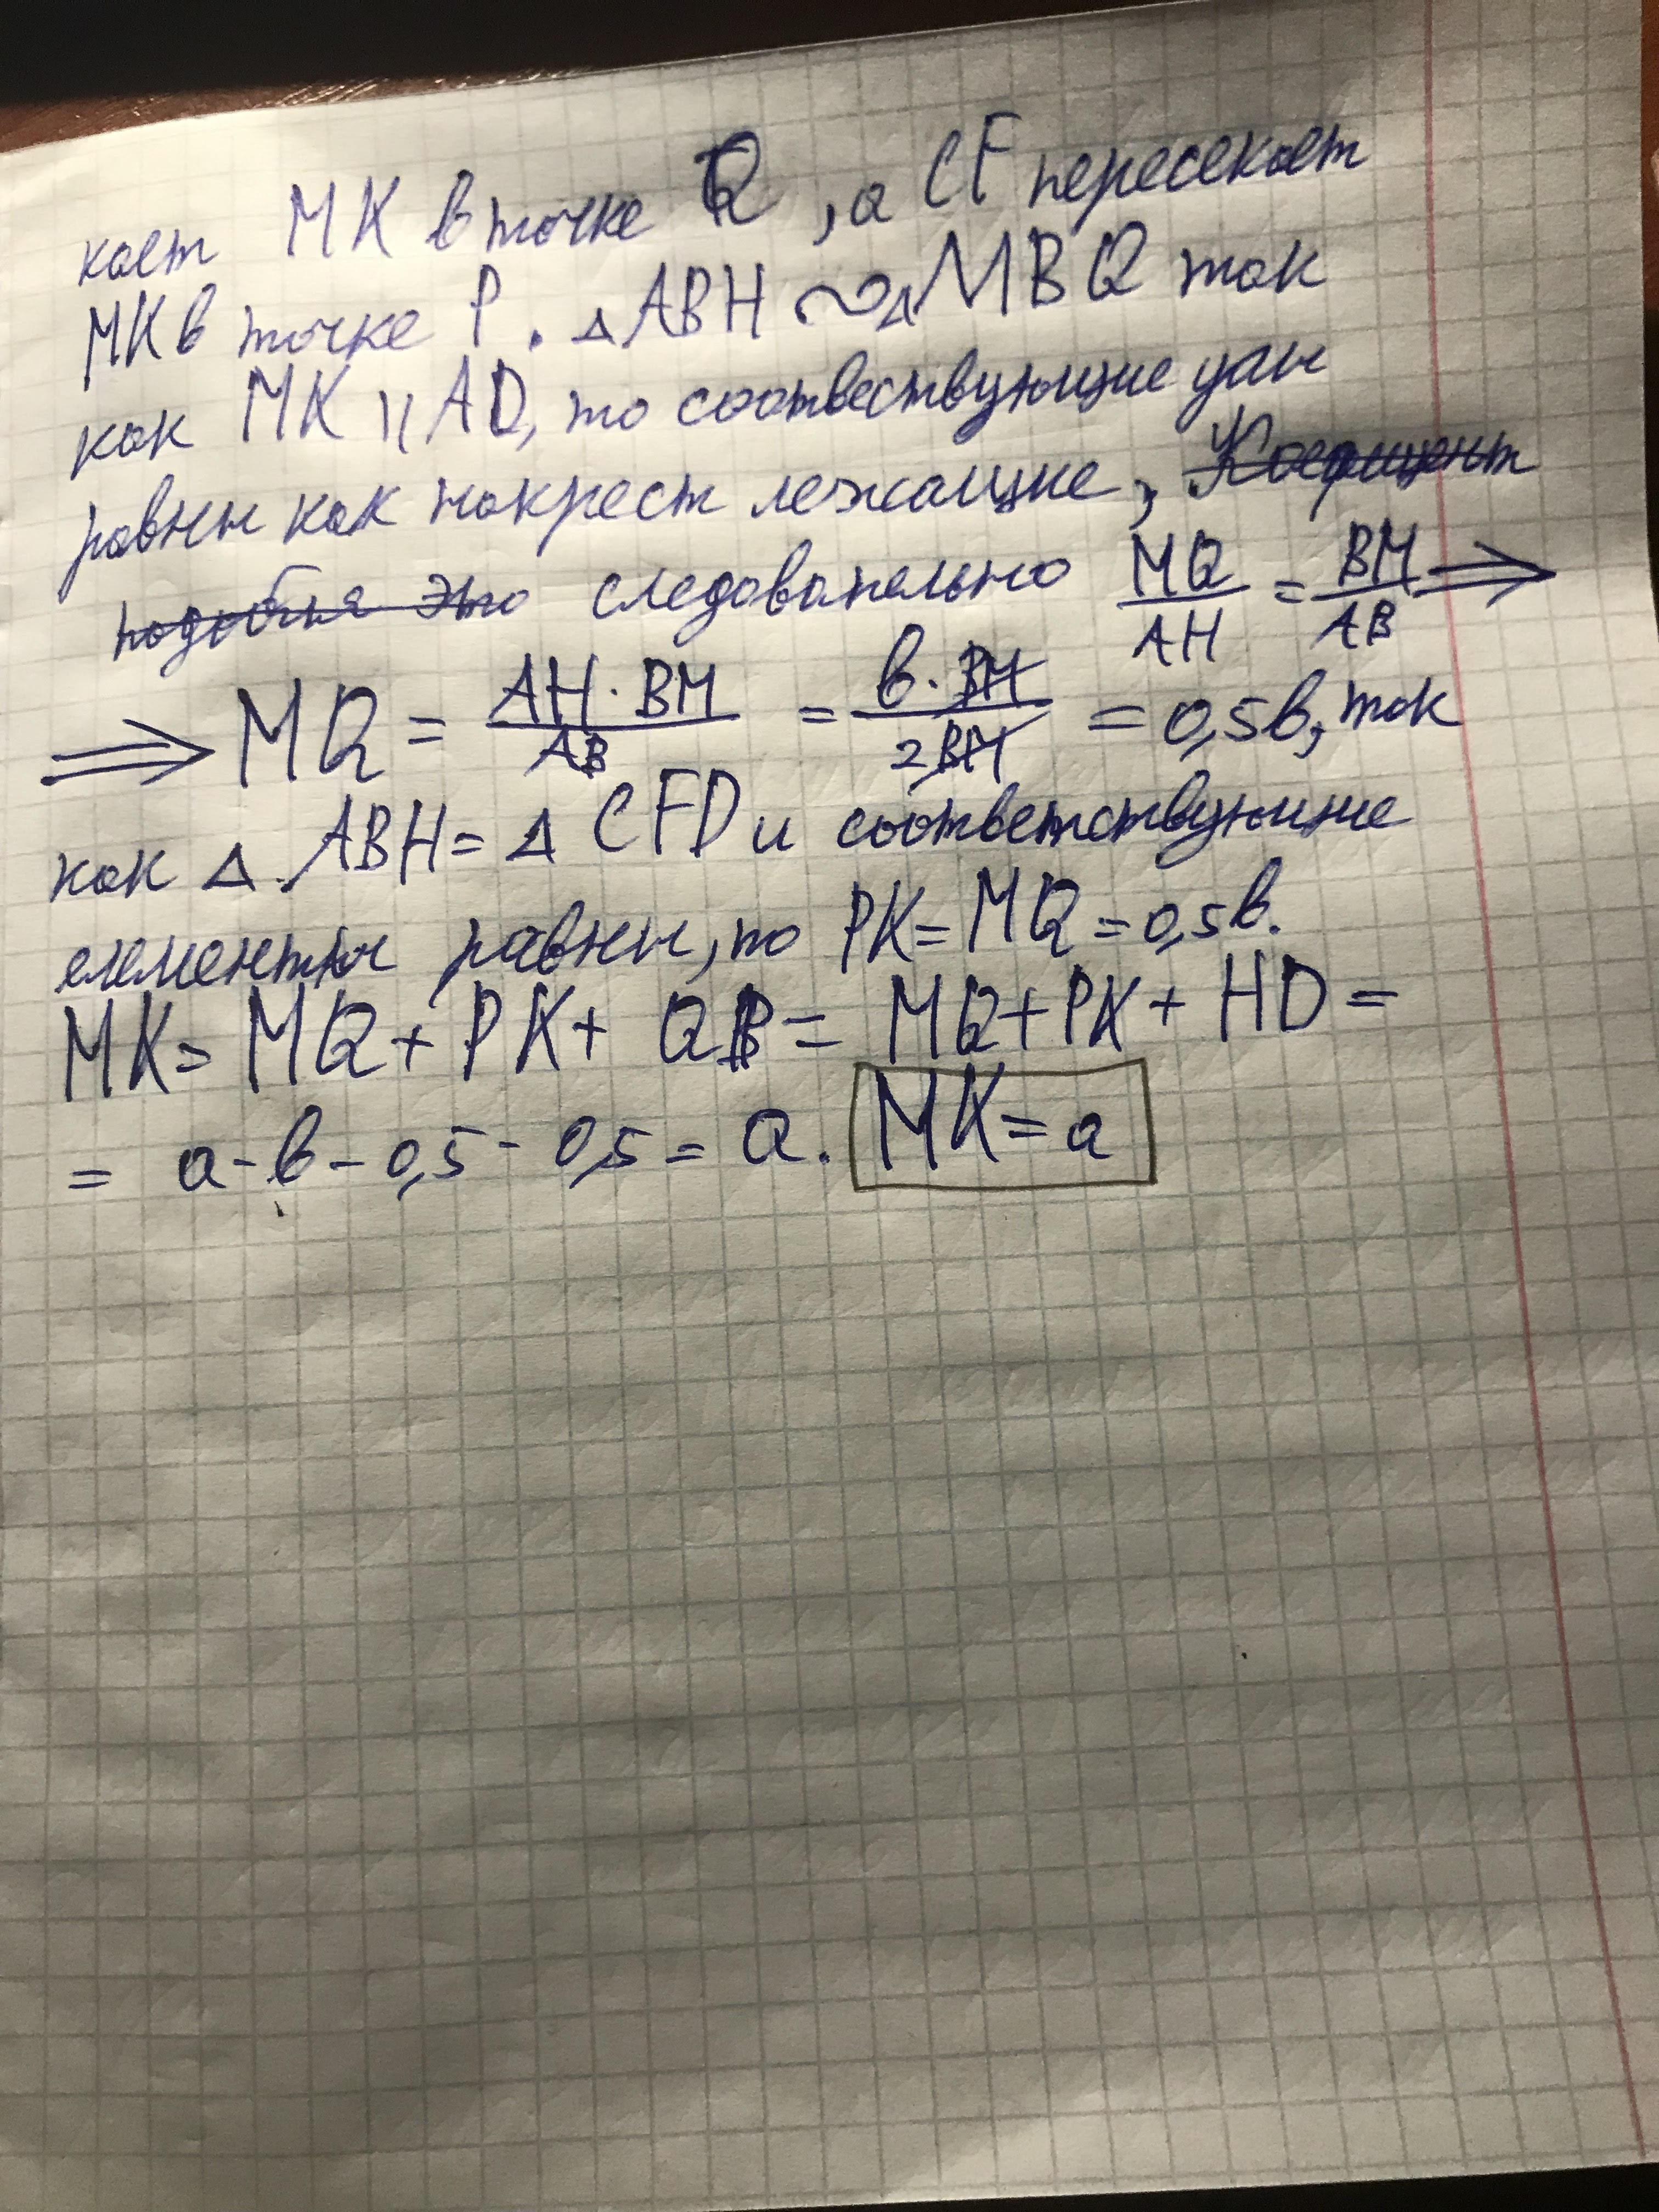 кает МК в точке Q, а CF пересекает
МК в точке P. △ABH ~ △MBQ так
как MK || AD, то соотвествующие угли
равны как накрест лежащие, Коефициент
подобия это следовательно MQ/AH = BM/AB ⟹
⟹ MQ = AH·BM/AB = в·BM/2BM = 0,5в, так
как △ABH = △CFD и соответствующие
елементы равны, то PK = MQ = 0,5в.
MK = MQ + PK + QP = MQ + PK + HD =
= a - в - 0,5 - 0,5 = a. MK = a